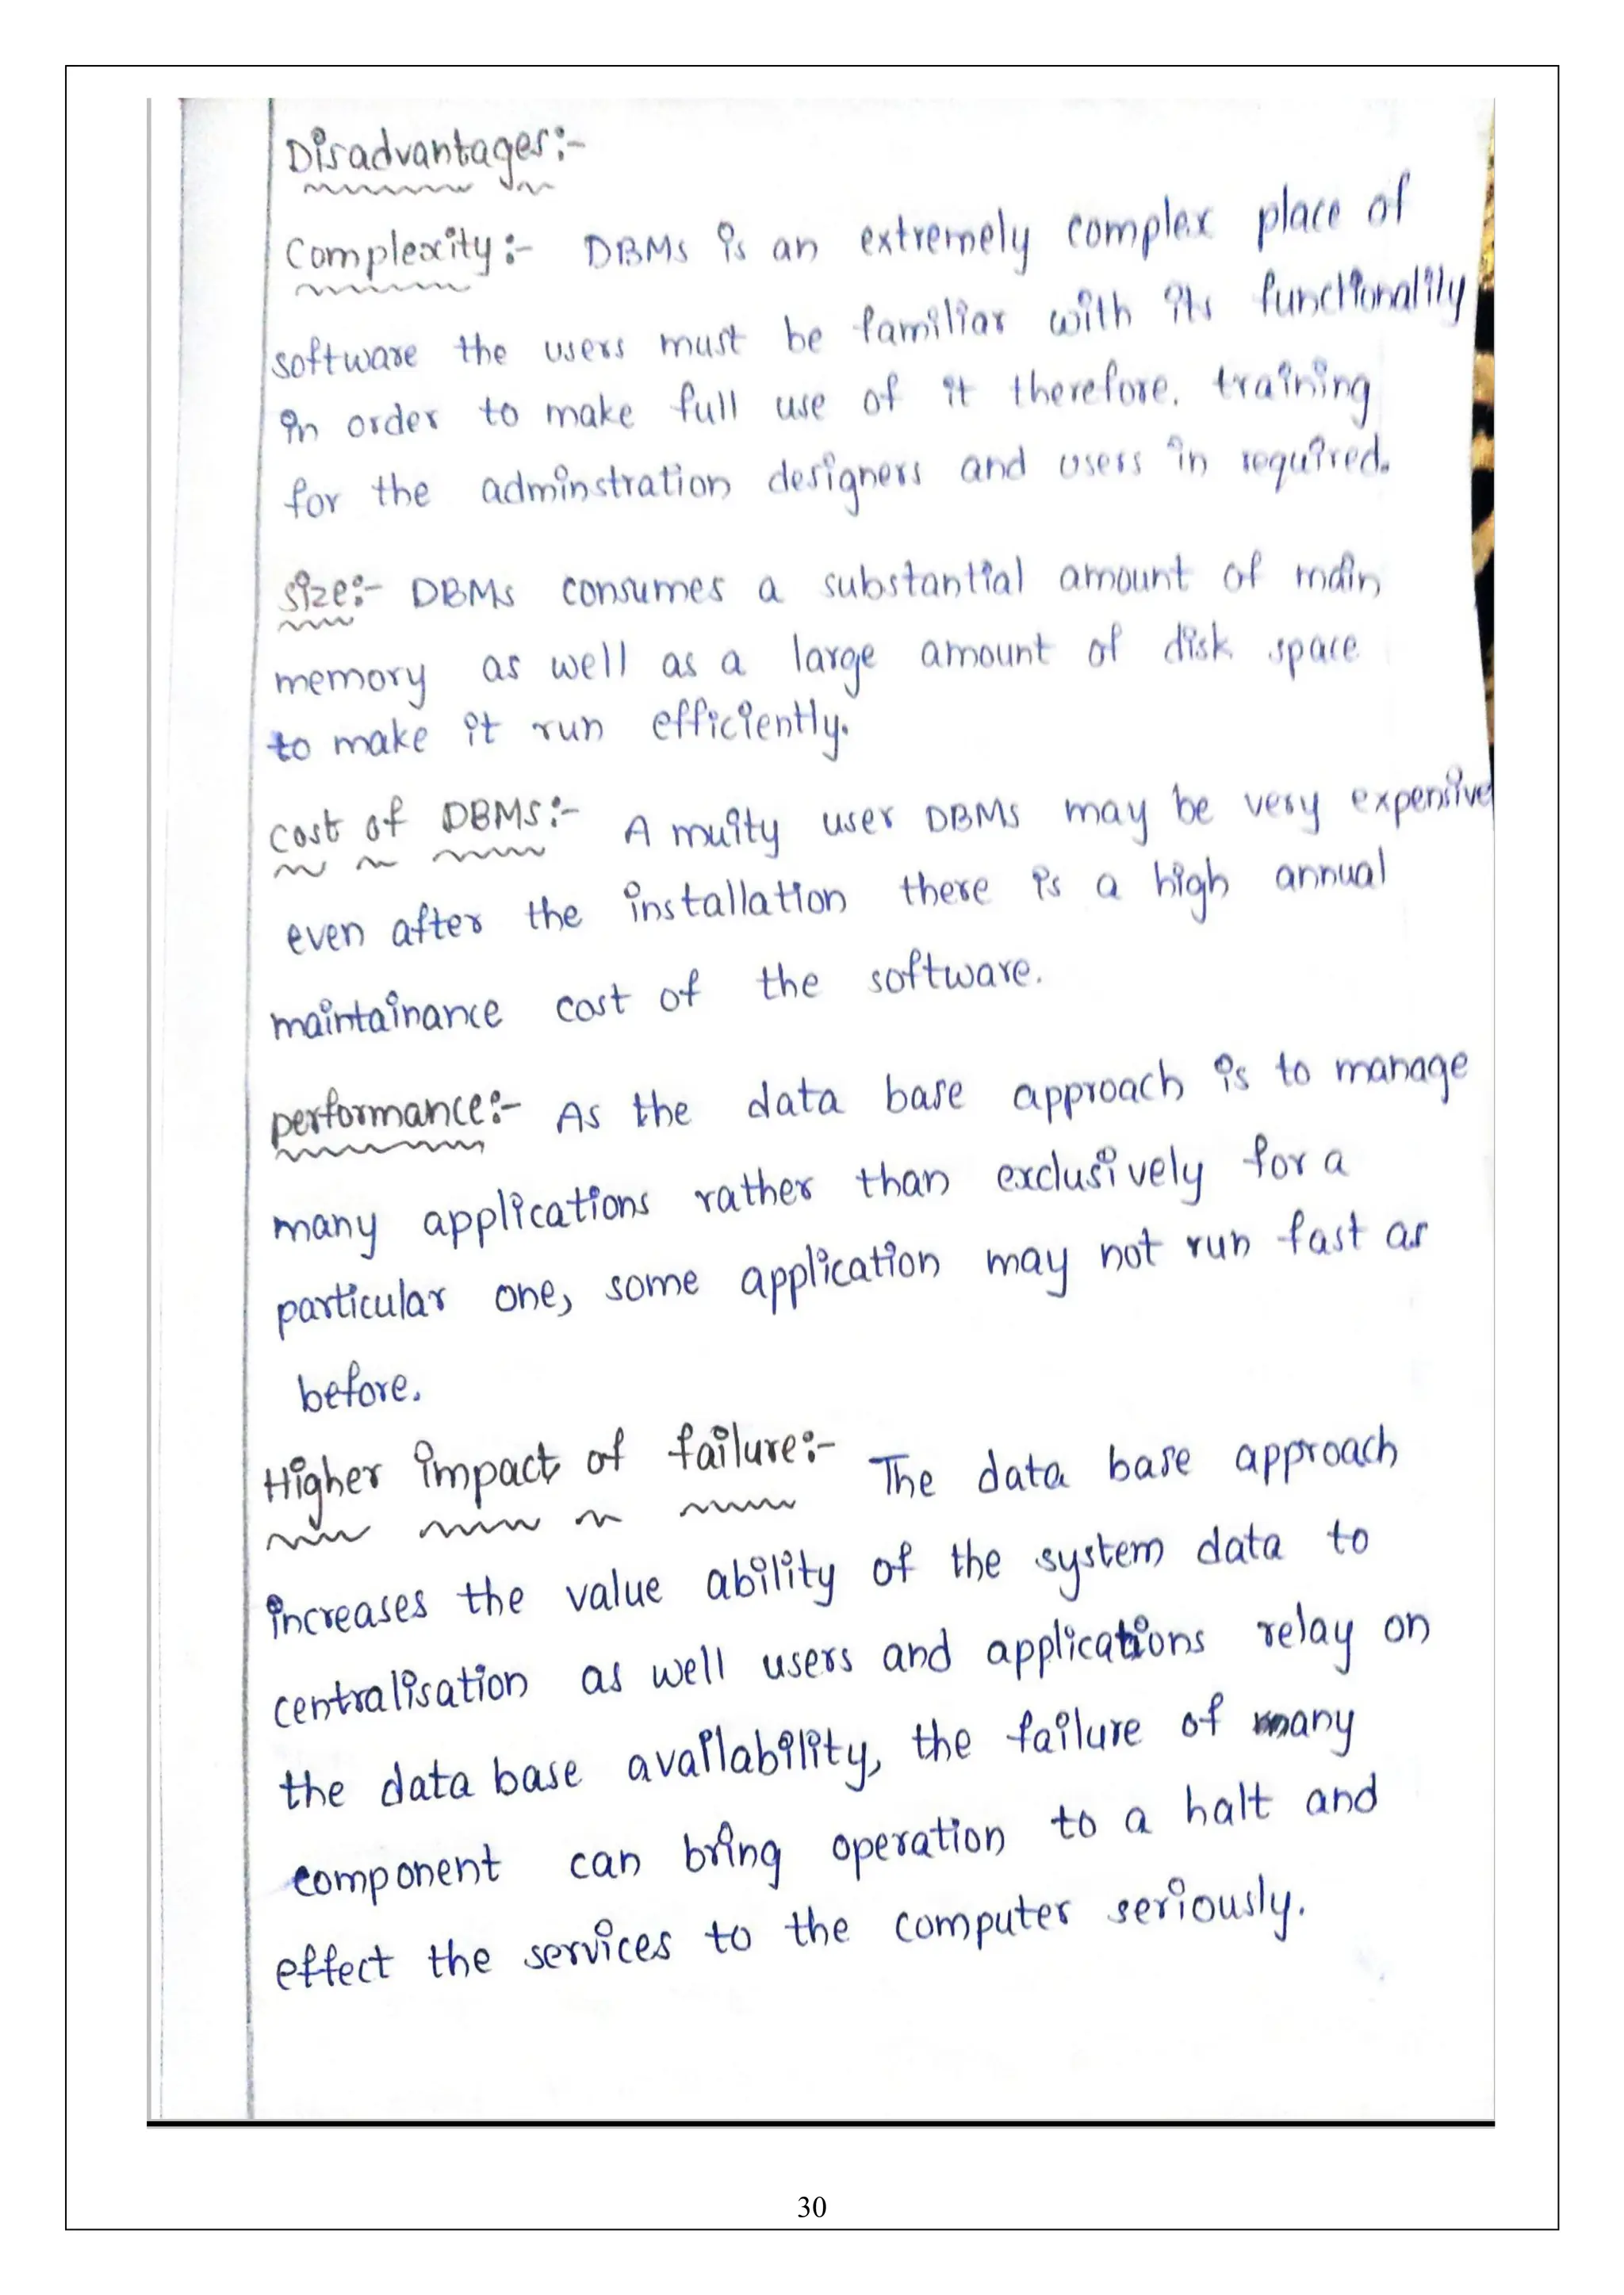 Disadvantages:-
Complexity:- DBMS is an extremely complex place of
software the users must be familiar with its functionality
in order to make full use of it therefore. training
for the adminstration designers and users in required.
Size:- DBMS consumes a substantial amount of main
memory as well as a large amount of disk space
to make it run efficiently.
Cost of DBMS:- A muity user DBMS may be very expensive
even after the installation there is a high annual
maintainance cost of the software.
performance:- As the data base approach is to manage
many applications rather than exclusively for a
particular one, some application may not run fast as
before.
Higher impact of failure:- The data base approach
increases the value ability of the system data to
centralisation as well users and applications relay on
the data base availability, the failure of many
component can bring operation to a halt and
effect the services to the computer seriously.
30